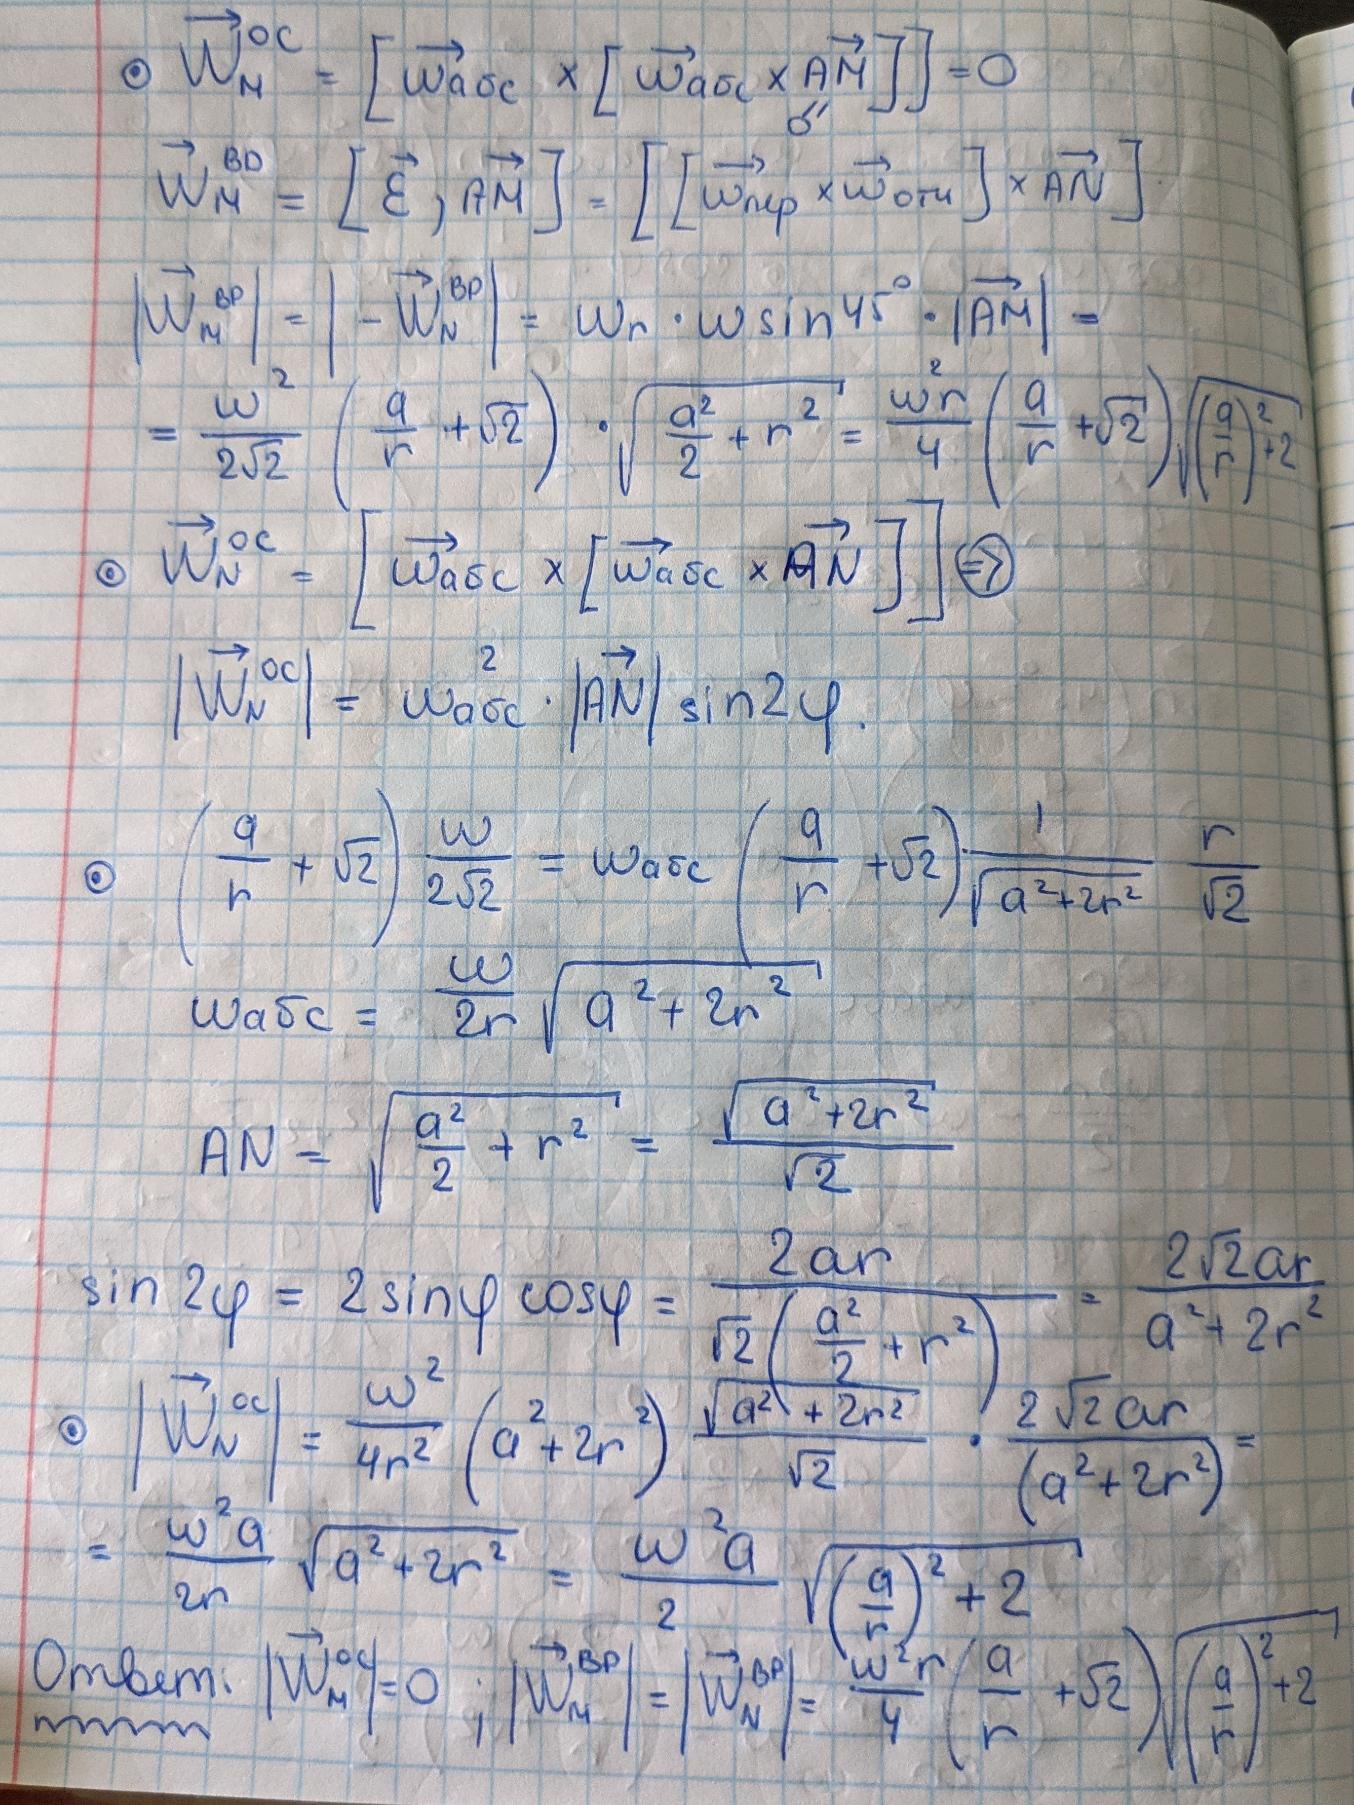 ⊙ $\vec{W}_M^{OC} = [\vec{\omega}_{абс} \times [\vec{\omega}_{абс} \times \vec{AM}]] = 0$
$\vec{W}_M^{ВР} = [\vec{\varepsilon}, \vec{AM}] = [[\vec{\omega}_{пер} \times \vec{\omega}_{отн}] \times \vec{AN}]$
$|\vec{W}_M^{ВР}| = |-\vec{W}_N^{ВР}| = \omega_r \cdot \omega \sin 45° \cdot |\vec{AM}| =$
$= \frac{\omega^2}{2\sqrt{2}} \left(\frac{a}{r} + \sqrt{2}\right) \cdot \sqrt{\frac{a^2}{2} + r^2} = \frac{\omega^2 r}{4} \left(\frac{a}{r} + \sqrt{2}\right) \sqrt{\left(\frac{a}{r}\right)^2 + 2}$
⊙ $\vec{W}_N^{OC} = [\vec{\omega}_{абс} \times [\vec{\omega}_{абс} \times \vec{AN}]] \Rightarrow$
$|\vec{W}_N^{OC}| = \omega_{абс}^2 \cdot |\vec{AN}| \sin 2\varphi.$
⊙ $\left(\frac{a}{r} + \sqrt{2}\right) \frac{\omega}{2\sqrt{2}} = \omega_{абс} \left(\frac{a}{r} + \sqrt{2}\right) \frac{1}{\sqrt{a^2 + 2r^2}} \frac{r}{\sqrt{2}}$
$\omega_{абс} = \frac{\omega}{2r} \sqrt{a^2 + 2r^2}$
$AN = \sqrt{\frac{a^2}{2} + r^2} = \frac{\sqrt{a^2 + 2r^2}}{\sqrt{2}}$
$\sin 2\varphi = 2 \sin\varphi \cos\varphi = \frac{2ar}{\sqrt{2}\left(\frac{a^2}{2} + r^2\right)} = \frac{2\sqrt{2}ar}{a^2 + 2r^2}$
⊙ $|\vec{W}_N^{OC}| = \frac{\omega^2}{4r^2} (a^2 + 2r^2) \frac{\sqrt{a^2 + 2r^2}}{\sqrt{2}} \cdot \frac{2\sqrt{2}ar}{(a^2 + 2r^2)} =$
$= \frac{\omega^2 a}{2r} \sqrt{a^2 + 2r^2} = \frac{\omega^2 a}{2} \sqrt{\left(\frac{a}{r}\right)^2 + 2}$
Ответ: $|\vec{W}_M^{OC}| = 0; |\vec{W}_M^{ВР}| = |\vec{W}_N^{ВР}| = \frac{\omega^2 r}{4} \left(\frac{a}{r} + \sqrt{2}\right) \sqrt{\left(\frac{a}{r}\right)^2 + 2}$